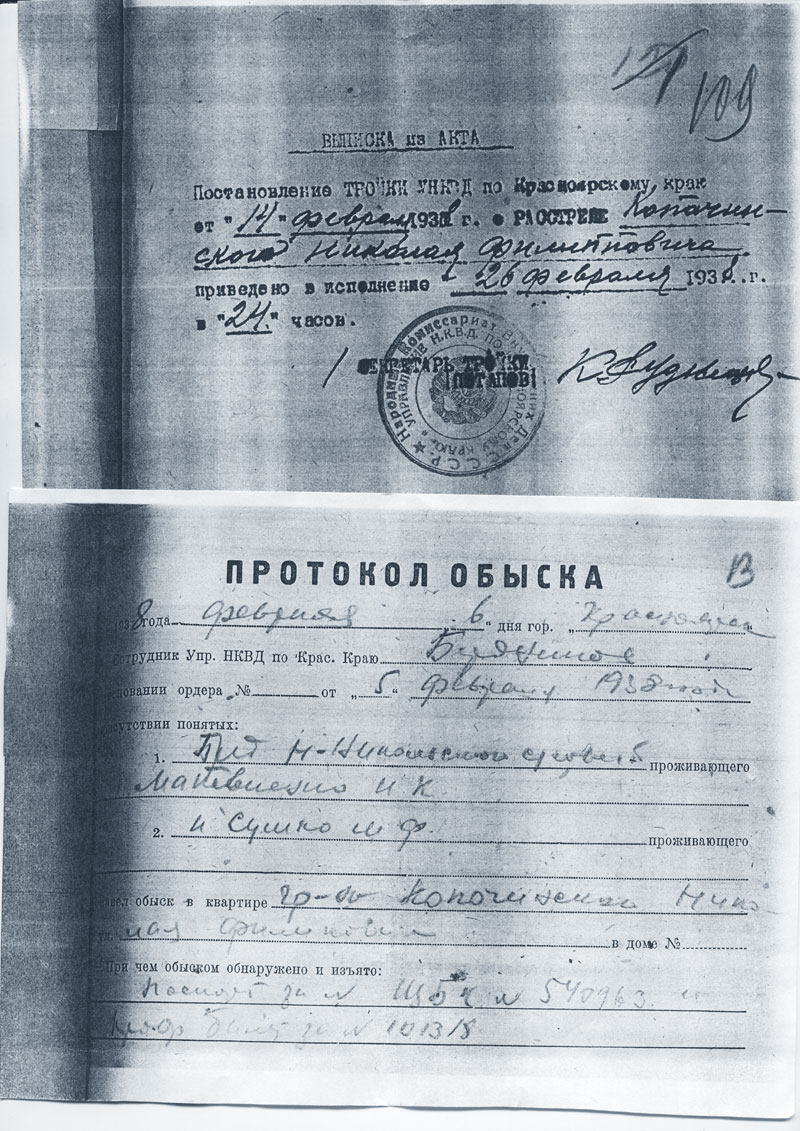 109
ВЫПИСКА из АКТА
Постановление ТРОЙКИ УНКВД по Красноярскому, краю
от "14" февраля 1938 г. о РАССТРЕЛЕ Копачин-
ского Николая Филипповича
приведено в исполнение "26 февраля 1938.. г.
в "24." часов.
СЕКРЕТАРЬ ТРОЙКИ
(ПОТАПОВ)
Народный Комиссариат Внутренних Дел С.С.С.Р
УПРАВЛЕНИЕ Н.К.В.Д. ПО КРАСНОЯРСКОМУ КРАЮ
13
ПРОТОКОЛ ОБЫСКА
1938 года февраля „6" дня гор. „Красноярск"
сотрудник Упр. НКВД по Крас. Краю
овании ордера № от „5" февраля 1938
сутствии понятых:
1. Пред Н-Никольской проживающего
Матвиенко И К
2. и Сушко М Ф. проживающего
вел обыск в квартире гр-на Копачинского Нико-
лая в доме №
При чем обыском обнаружено и изъято:
Паспорт за № ЩБК № 540963 и
Проф билет за № 101318